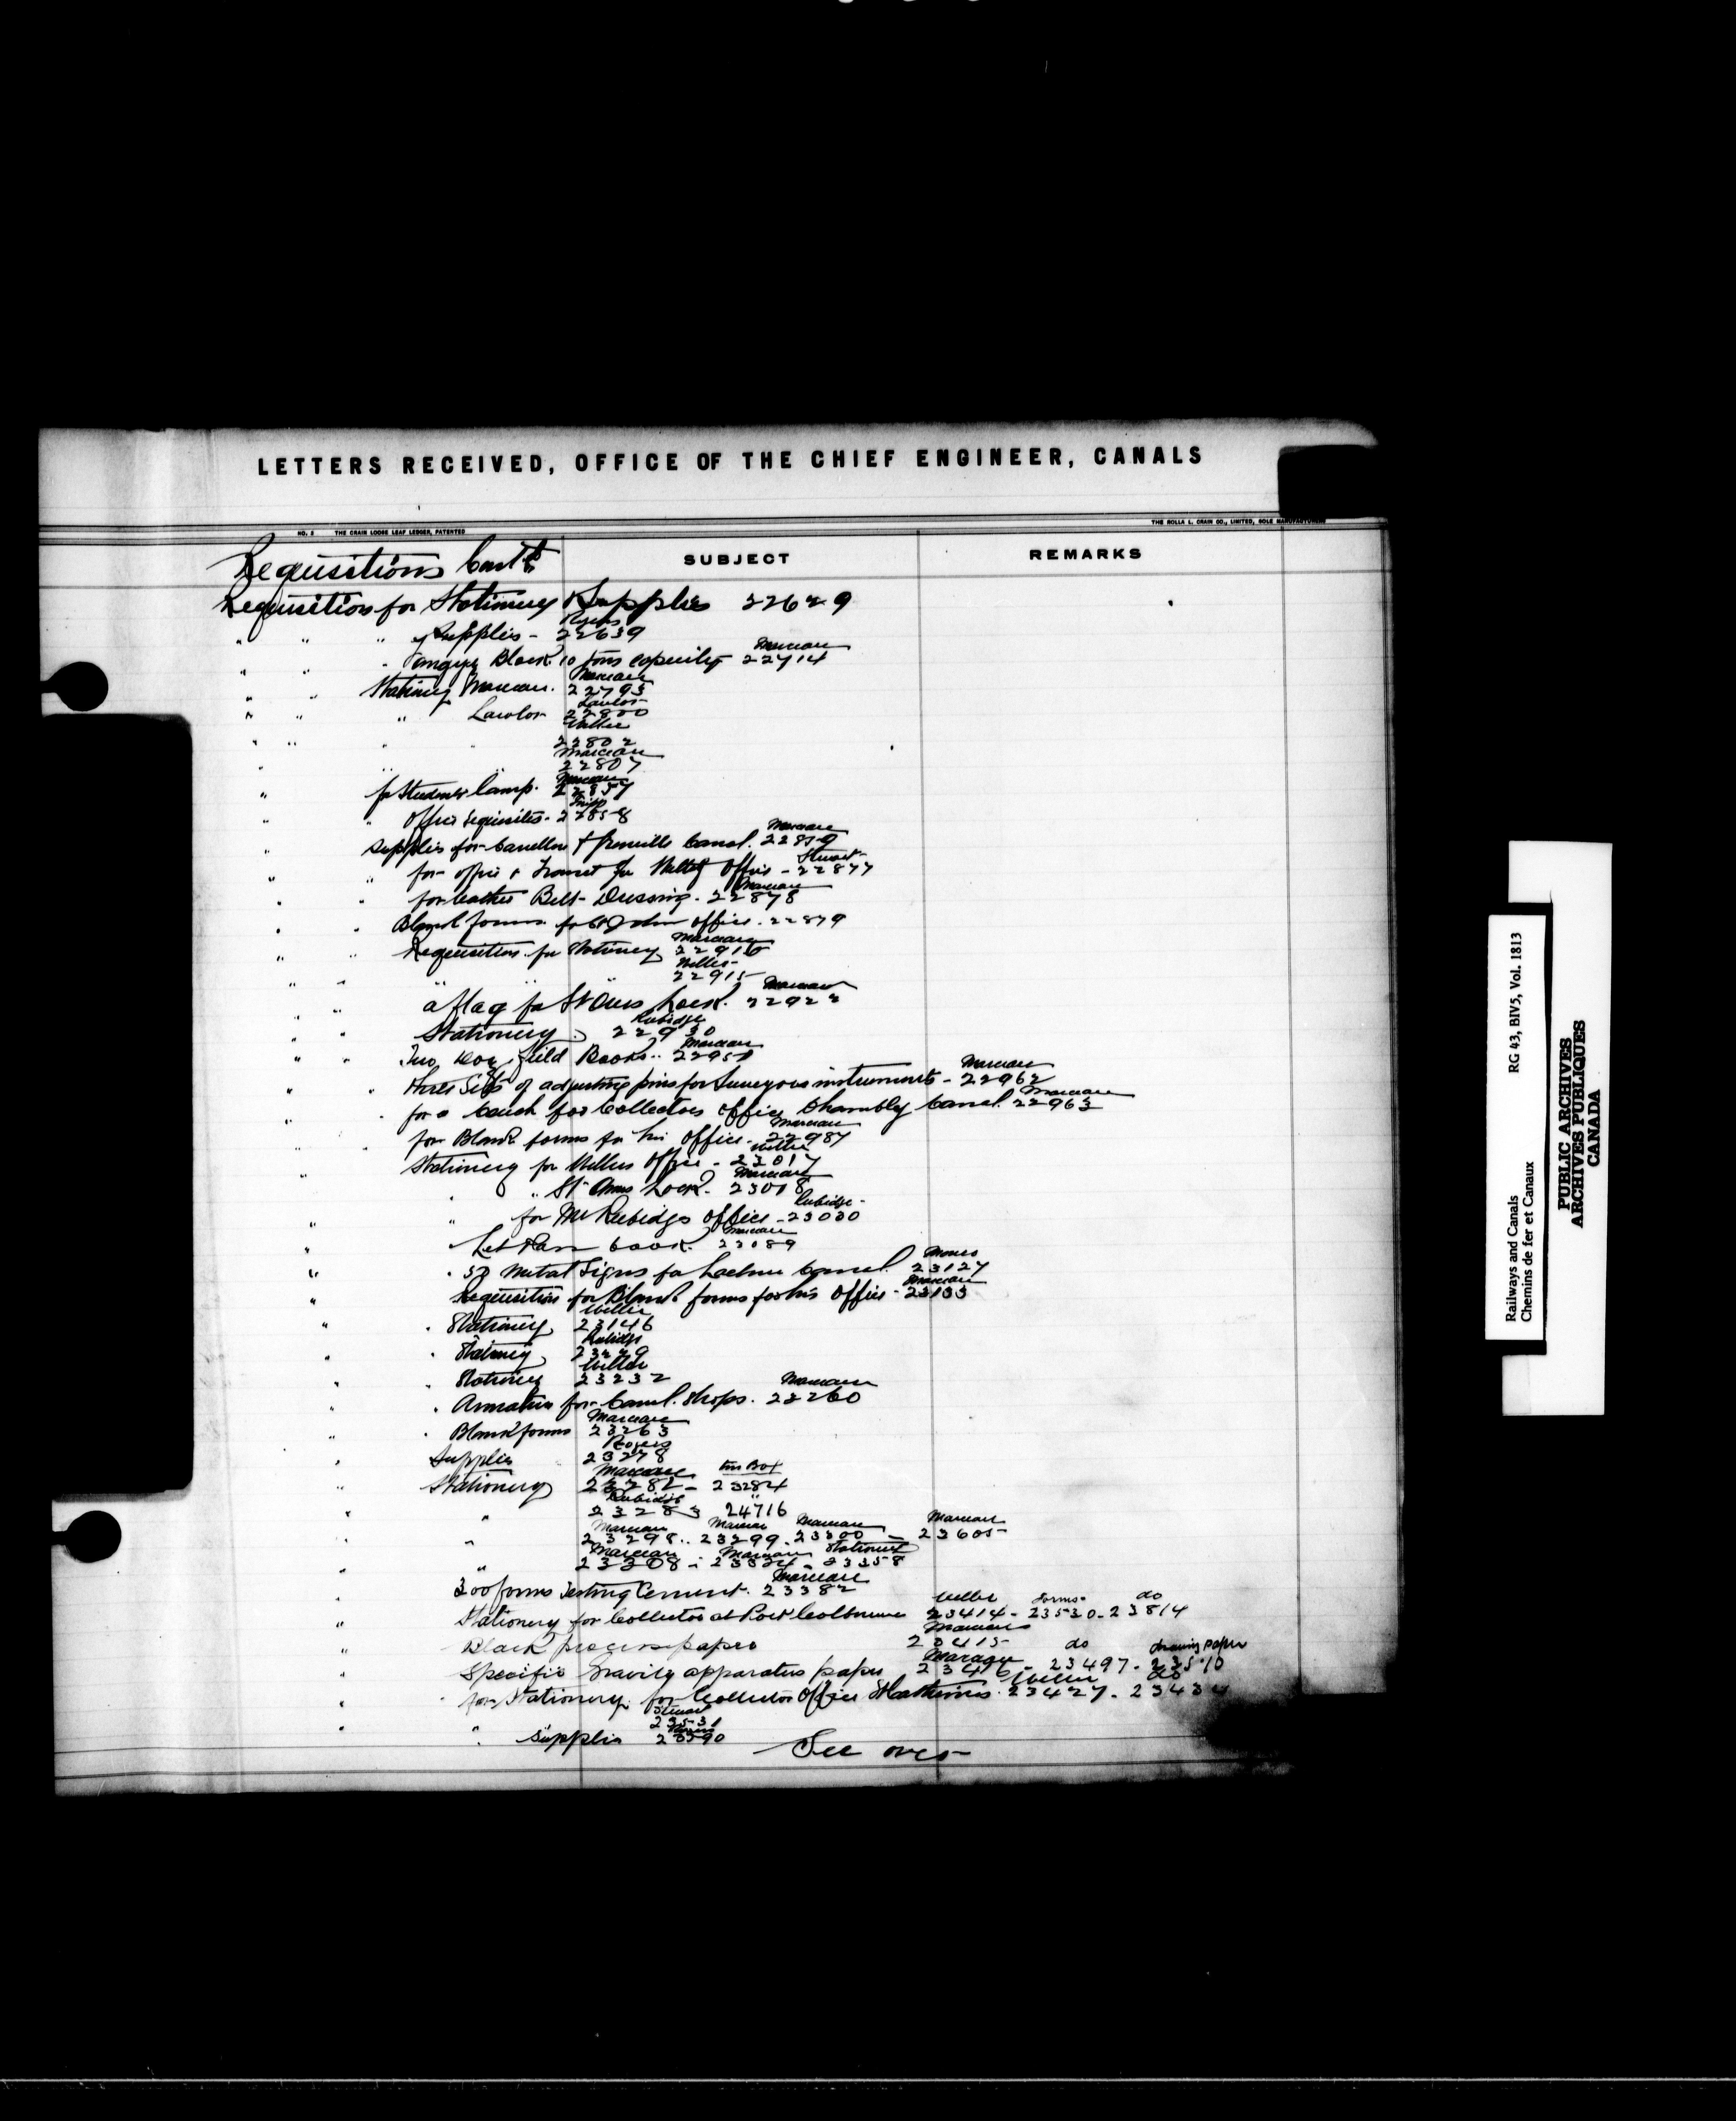 LETTERS RECEIVED, OFFICE OF THE CHIEF ENGINEER, CANALS
NO. 2 THE CRAIN LOOSE LEAF LEDGER, PATENTED
THE ROLLA L. CRAIN CO., LIMITED, SOLE MANUFACTURERS
Requisitions Cont'd
SUBJECT
REMARKS
Requisition for Stationery & Supplies 22629
Rogers
" " " Supplies - 22639
Marceau
" " " Block 10 tons capacity 22714
Marceau
" " Stationery Marceau. 22793
Lawlor
" " " Lawlor 22800
Weller
" " " " 22802
Marceau
" " " 22807
Marceau
" for Students Lamp. 22857
" " Office requisites - 22858
Marceau
" Supplies for Carillon & Grenville Canal. 22859
Stuart
" " for office & Transit for Office - 22877
Marceau
" " for leather Belt Dressing. 22878
" " Blank forms for St John office. 22879
Marceau
" " Requisition for Stationery 22910
Weller
" " " " 22915
Marceau
" " a flag for St Ours Lock. 22922
Rubidge
" " Stationery 22930
Marceau
" " Two Doz field Books 22951
Marceau
" " three Sets of adjusting pins for Surveyors instruments - 22962
Marceau
" " for a Couch for Collectors office Chambly Canal. 22963
Marceau
" for Blank forms for his office - 22987
Weller
Stationery for Wellers Office - 23017
Marceau
" " St Anns Lock. 23018
Rubidge
" " for Mr Rubidges office - 23030
Marceau
" " Let Pass book. 23089
" " 50 Metal Signs for Lachine Canal. 23127
Marceau
" Requisition for Blank forms for his Office - 23133
Weller
" " Stationery 23146
Rubidge
" " Stationery 23229
Weller
" " Stationery 23232
Marceau
" " for Canal Shops. 23260
Marceau
" " Blank forms 23263
Rogers
" Supplies 23278
Marceau tin Box
" Stationery 23282 - 23284
Rubidge "
" " 23283 24716
Marceau Marceau Marceau Marceau
" " 23298 .. 23299 - 23300 - 23605
Marceau Marceau Stationery
" " 23308 - 23324 - 23358
Marceau
300 forms Testing Cement. 23382
Weller forms do
" Stationery for Collector at Port Colborne 23414 - 23530 - 23814
Marceau
" Black process paper 23415 do drawing paper
" Specific Gravity apparatus paper 23416 - 23497 - 23510
Weller do
" " for Stationery for Collectors Office St Catherines. 23427 -
Stuart
23531
" " Supplies 23590
See over
Railways and Canals
Chemins de fer et Canaux
RG 43, BIV5, Vol. 1813
PUBLIC ARCHIVES
ARCHIVES PUBLIQUES
CANADA